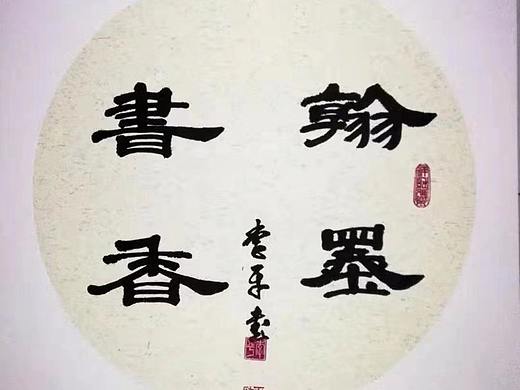 翰墨
書香